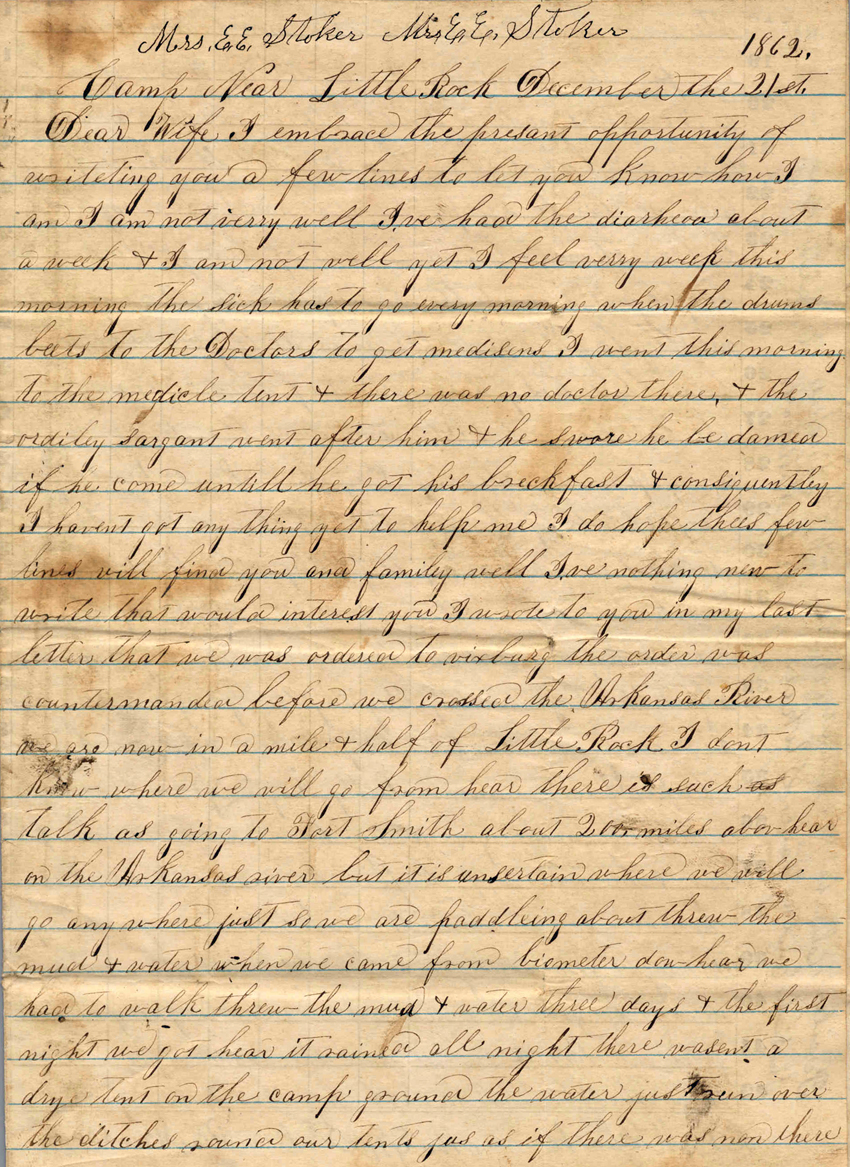 Mrs. E.E. Stoker Mrs. E.E. Stoker
1862.
Camp Near Little Rock December the 21st.
Dear Wife I embrace the presant opportunity of
writeting you a few lines to let you know how I
am I am not verry well I,ve had the diarheea about
a week & I am not well yet I feel verry week this
morning the sick has to go every morning when the drums
beets to the Doctors to get medisens I went this morning
to the medicle tent & there was no doctor there, & the
ordiley sargant went after him & he swore he be damed
if he come untill he got his breckfast & consiquentley
I havent got any thing yet to help me I do hope thees few
lines will find you and familey well I,ve nothing new to
write that would interest you I wrote to you in my last
letter that we was ordered to vixburg the order was
countermanded before we crossed the Arkansas River
we are now in a mile & half of Little Rock I dont
know where we will go from hear there is such as
talk as going to Fort Smith about 200 miles abov hear
on the Arkansas river but it is unsertain where we will
go any where just so we are paddleing about threw the
mud & water when we came from biometer dow hear we
had to walk threw the mud & water three days & the first
night we got hear it rained all night there wasent a
drye tent on the camp ground the water just run over
the ditches round our tents jus as if there was non there